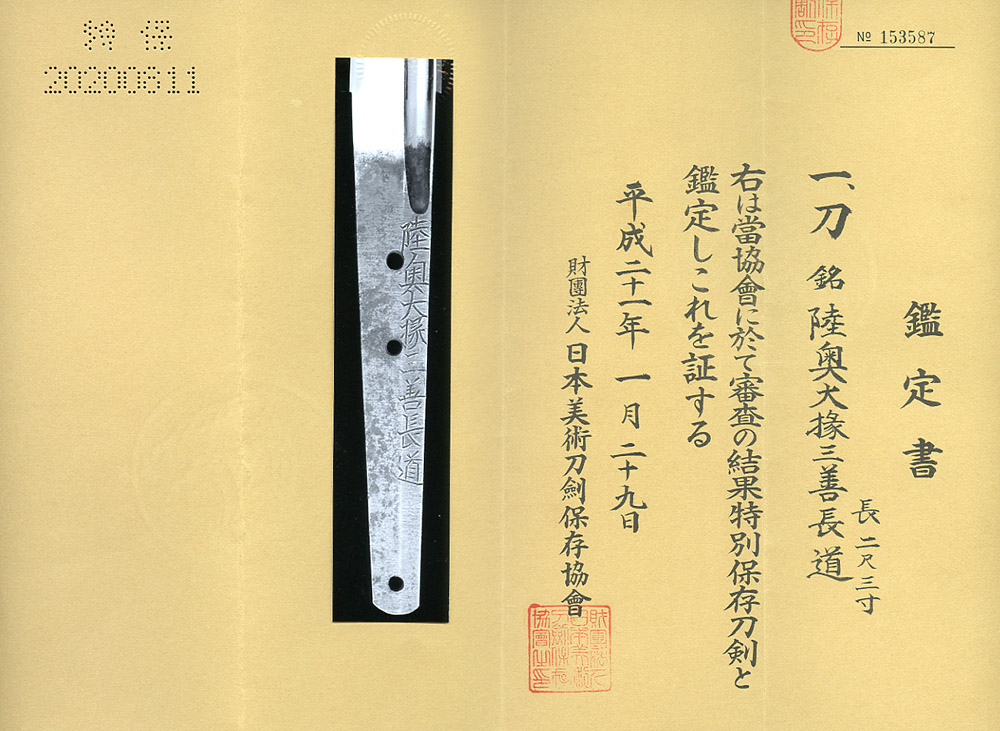 特 保
20200811
№ 153587
鑑定書
一、刀 銘 陸奥大掾三善長道
長 二尺三寸
右は當協會に於て審査の結果特別保存刀剣と
鑑定しこれを証する
平成二十一年 一月 二十九日
財團法人 日本美術刀劍保存協會
陸奥大掾三善長道